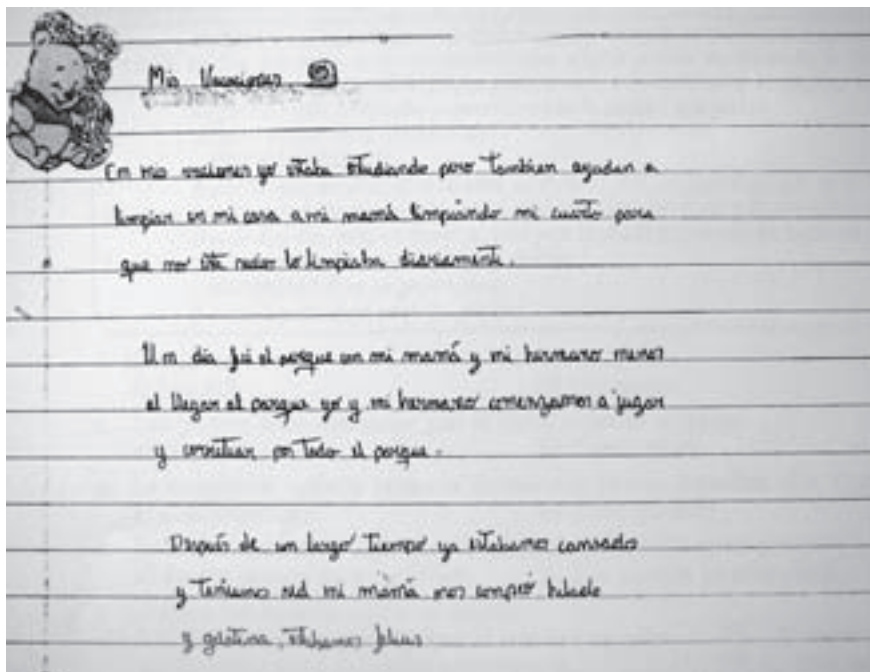 Mis Vacaciones
En mis vaciones yo estaba estudiando pero tambien ayudan a
limpiar en mi casa a mi mamá limpiando mi cuarto para
que no este lo limpiaba diariamente.
Un día fui al parque con mi mamá y mi hermano menor
al llegar al parque yo y mi hermano comenzamos a jugar
y corretiar por todo el parque.
Después de un largo tiempo ya estabamos cansados
y teniamos sed mi mamá nos compró helado
y galetina, estabamos felices